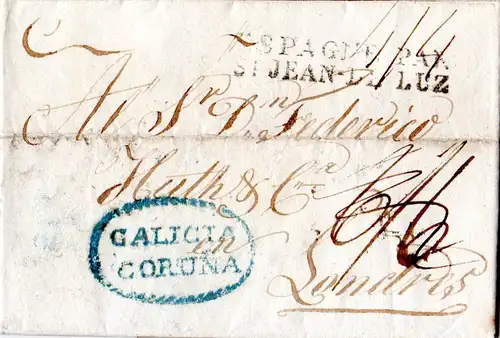 ESPAGNE PAR
ST JEAN-DE LUZ
Al Sr. Dn. Federico
Huth & Cía
en
Londres
GALICIA
CORUÑA